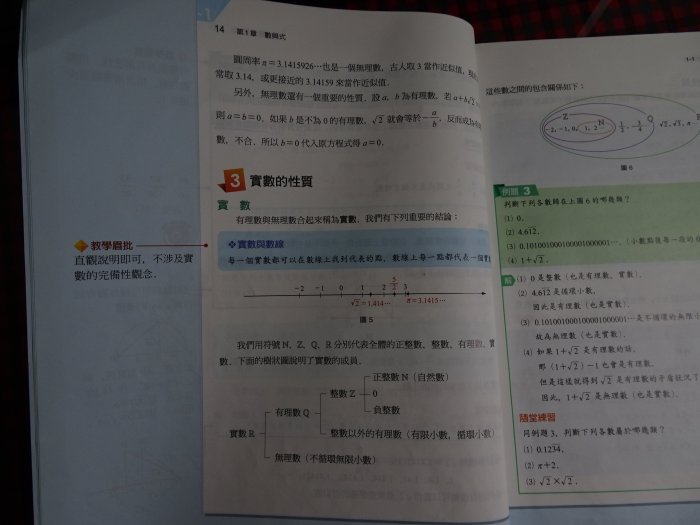 14 第1章 數與式
圓周率 π = 3.1415926⋯也是一個無理數,古人取 3 當作近似值,
常取 3.14,或更接近的 3.14159 來當作近似值.
另外,無理數還有一個重要的性質.設 a,b 為有理數,若 a+b√2
則 a=b=0.如果 b 是不為 0 的有理數,√2 就會等於 -a/b,反而成為有理
數,不合.所以 b=0 代入原方程式得 a=0.
3 實數的性質
實 數
有理數與無理數合起來稱為實數.我們有下列重要的結論:
教學眉批
直觀說明即可,不涉及實
數的完備性觀念.
❖實數與數線
每一個實數都可以在數線上找到代表的點,數線上每一點都代表一個實數
-2 -1 0 1 2 5/2 3
√2=1.414⋯ π=3.1415⋯
圖 5
我們用符號 N、Z、Q、R 分別代表全體的正整數、整數、有理數、實
數.下面的樹狀圖說明了實數的成員.
正整數 N(自然數)
整數 Z 0
有理數 Q 負整數
實數 R 整數以外的有理數(有限小數,循環小數)
無理數(不循環無限小數)
1-1
這些數之間的包含關係如下:
Z N Q
-2, -1, 0, 1, 2 1/2, -3/4 √2, √3, π
圖 6
例題 3
判斷下列各數歸在上圖 6 的哪幾類?
(1) 0.
(2) 4.612.
(3) 0.101001000100001000001⋯.(小數點後每一段的
(4) 1+√2.
解 (1) 0 是整數(也是有理數、實數).
(2) 4.612 是循環小數,
因此是有理數(也是實數).
(3) 0.101001000100001000001⋯是不循環的無限小
故為無理數(也是實數).
(4) 如果 1+√2 是有理數的話,
即 (1+√2)-1 也會是有理數.
但是這樣就得到 √2 是有理數的矛盾狀況了
因此,1+√2 是無理數(也是實數).
隨堂練習
同例題 3,判斷下列各數屬於哪幾類?
(1) 0.1234.
(2) π+2.
(3) √2×√2.